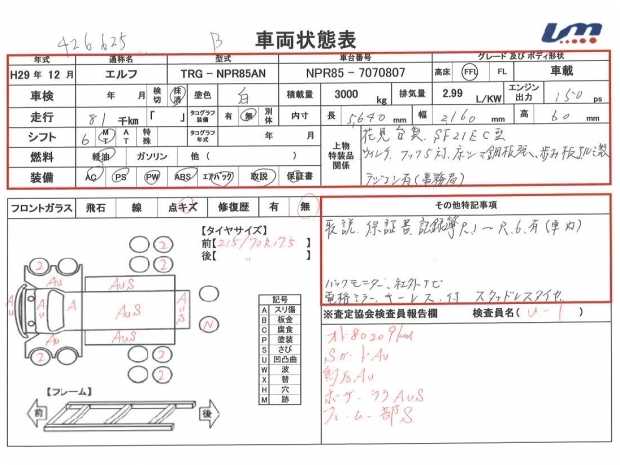 426625 B 車両状態表 um
年式 通称名 型式 車台番号 グレード 及び ボディ形状
H29 年 12 月 エルフ TRG - NPR85AN NPR85 - 7070807 高床 FFL FL 車載
車検 年 月 検切 抹消 塗色 白 積載量 3000 kg 排気量 2.99 L/KW エンジン出力 150 ps
走行 81 千km 「 」 タコグラフ装備 有 無 別体 内寸 長 5640 mm 幅 2160 mm 高 60 mm
シフト 6 MT AT 特殊 タコグラフ年式 年 月 上物特装品関係 花見台製、SF21EC型
燃料 軽油 ガソリン 他 ( )
装備 AC PS PW ABS エアバック 取説 保証書 ラジコン有(事務局)
フロントガラス 飛石 線 点キズ 修復歴 有 無
その他特記事項
取説、保証書、記録簿R.1〜R.6.有(車内)
バックモニター、社外ナビ
電格ミラー、キーレス、付 スタッドレスタイヤ
【タイヤサイズ】
前【215/70R17.5 】
後【 〃 】
2 2
2 2
Au
A Au Au AuS AuS AuS
N
Au
2 2
2 2
記号
A スリ傷
B 板金
C 腐食
P 塗装
S さび
U 凹凸曲
W 波
X 替
H 穴
M 跡
※査定協会検査員報告欄 検査員名( U-1 )
オド80209km
SガードAu
AuS
フレーム部S
【フレーム】
前 後